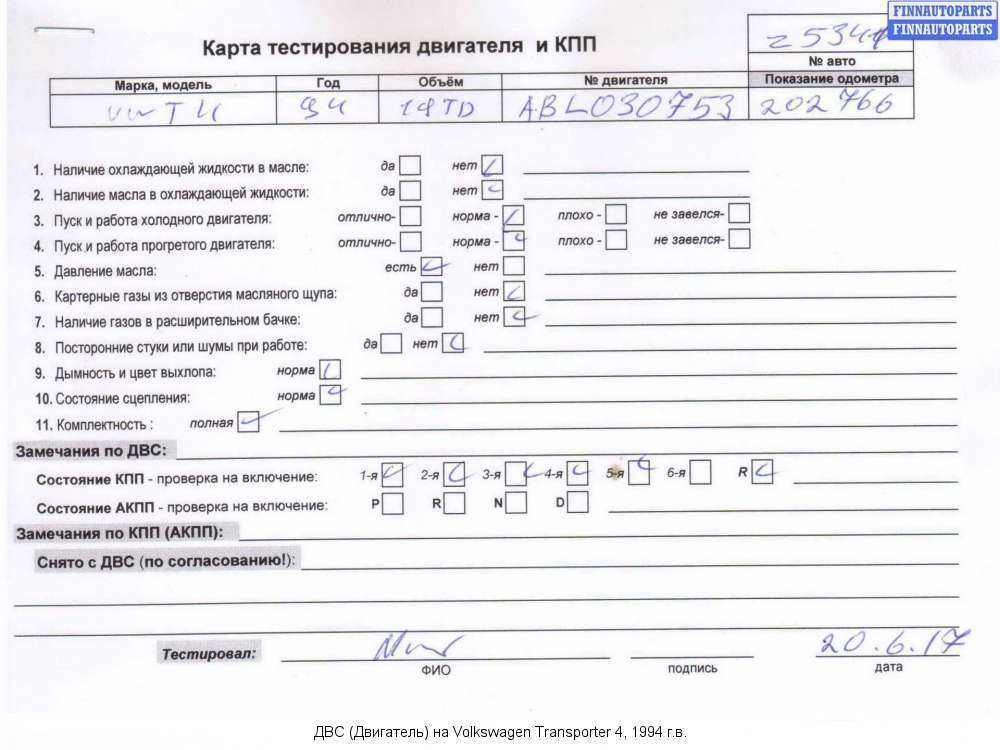 FINNAUTOPARTS
FINNAUTOPARTS
Карта тестирования двигателя и КПП
z534
№ авто
Марка, модель Год Объём № двигателя Показание одометра
vw T4 94 1.9TD ABL030753 202766
1. Наличие охлаждающей жидкости в масле: да нет
2. Наличие масла в охлаждающей жидкости: да нет
3. Пуск и работа холодного двигателя: отлично- норма - плохо - не завелся-
4. Пуск и работа прогретого двигателя: отлично- норма - плохо - не завелся-
5. Давление масла: есть нет
6. Картерные газы из отверстия масляного щупа: да нет
7. Наличие газов в расширительном бачке: да нет
8. Посторонние стуки или шумы при работе: да нет
9. Дымность и цвет выхлопа: норма
10. Состояние сцепления: норма
11. Комплектность : полная
Замечания по ДВС:
Состояние КПП - проверка на включение: 1-я 2-я 3-я 4-я 5-я 6-я R
Состояние АКПП - проверка на включение: P R N D
Замечания по КПП (АКПП):
Снято с ДВС (по согласованию!):
Тестировал: 20.6.17
ФИО подпись дата
ДВС (Двигатель) на Volkswagen Transporter 4, 1994 г.в.